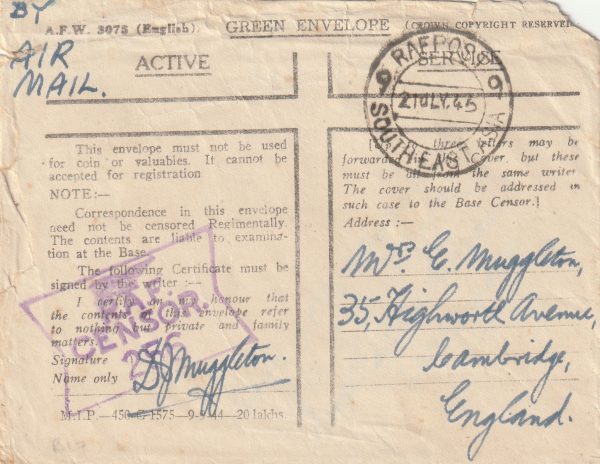 BY
AIR
MAIL.
A.F.W. 3075 (English) GREEN ENVELOPE (CROWN COPYRIGHT RESERVED
ACTIVE SERVICE
RAFPOST 9
21 JLY. 45
SOUTH EAST ASIA
9
This envelope must not be used
for coin or valuables. It cannot be
accepted for registration
NOTE:—
Correspondence in this envelope
need not be censored Regimentally.
The contents are liable to examina-
tion at the Base.
The following Certificate must be
signed by the writer :—
I certify on my honour that
the contents of this envelope refer
to nothing but private and family
matters.
Signature D J Muggleton.
Name only
CENSOR.
256
three letters may be
forwarded in this cover, but these
must be all from the same writer
The cover should be addressed in
such case to the Base Censor.]
Address :—
Mrs E. Muggleton,
35, Highworth Avenue,
Cambridge,
England.
M.I.P.—450 1575—9-9-44—20 lakhs.